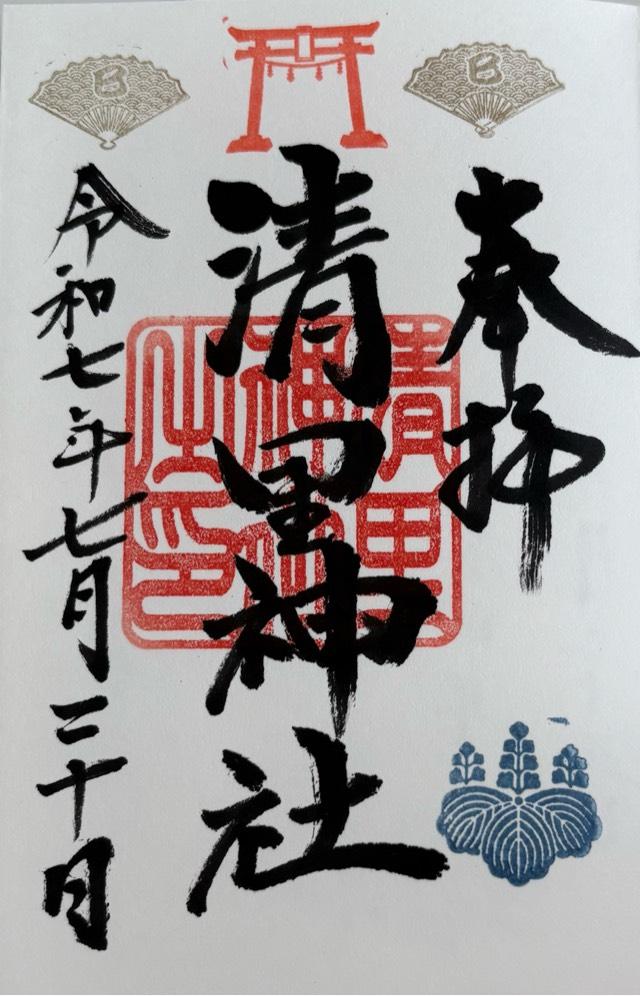 巳
巳
奉拝
清里神社
清里
神社
之印
令和七年七月二十日